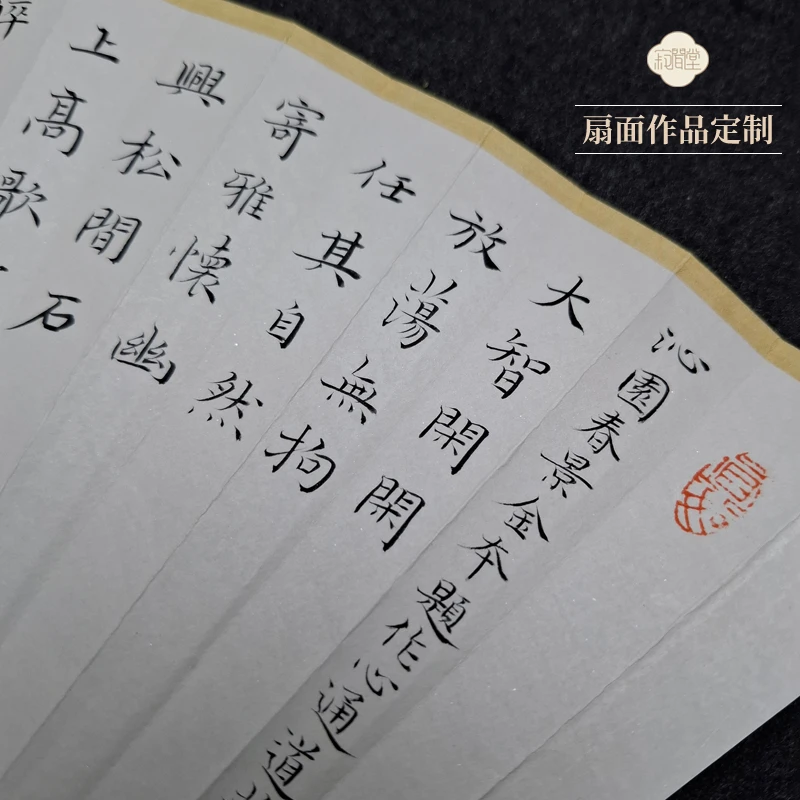 寂間堂
扇面作品定制
沁園春景金本題作心通道
大智閑閑
放蕩無拘
任其自然
寄雅懷幽
興松間
上高歌
石